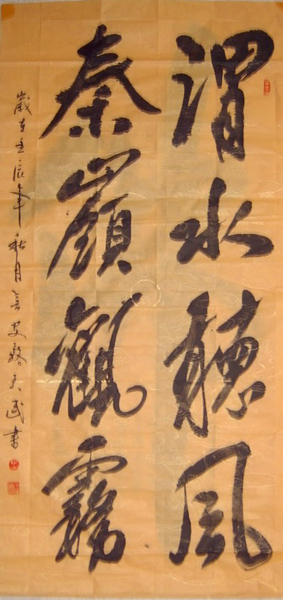 渭水聽風
秦嶺觀霧
歲在壬辰年秋月